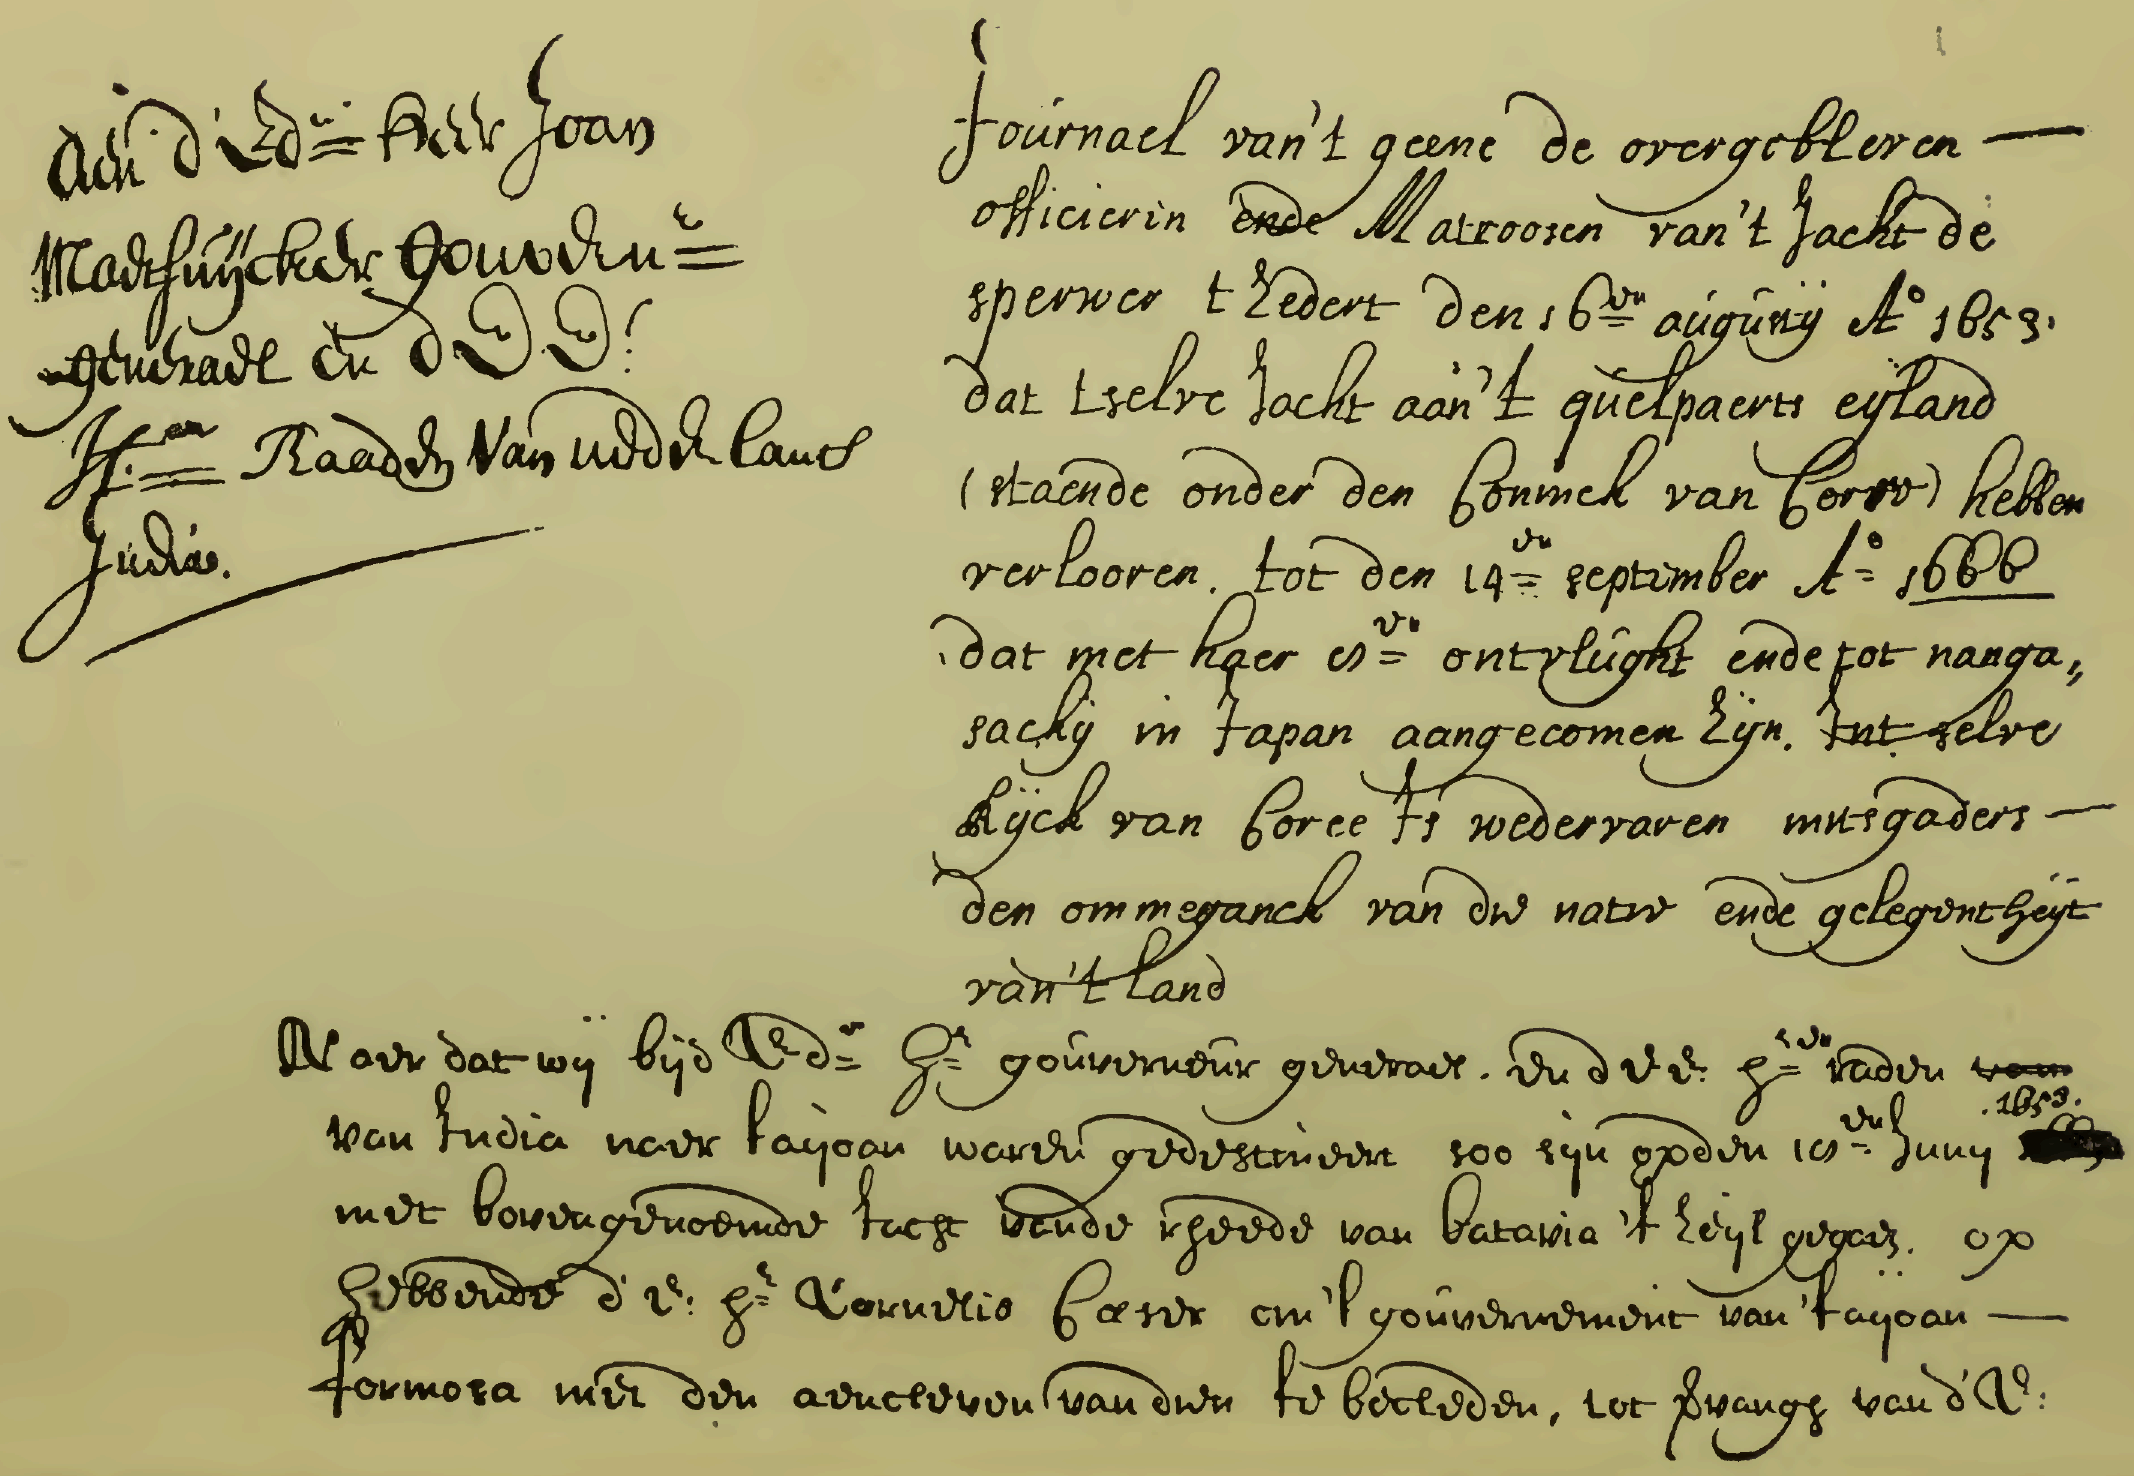 Aen d'Ed.n Heer Joan
Maetsuijcker gouvern.r
generael en d'E E:
H.ren Raaden van nederlants
India.
Journael van't geene de overgebleven —
officieren ende Matroosen van't Jacht de
sperwer t Zedert den 16.en augustij A.o 1653.
dat tselve Jacht aan't quelpaerts eijland
(staende onder den Coninck van Coree) hebben
verlooren. tot den 14.en september A.o 1666
dat met haer 8.en ontvlught ende tot nanga„
sackij in Japan aangecomen zijn. Int selve
Rijck van Coree Is wedervaren mitsgaders —
den ommeganck van die natie ende gelegentheijt
van't land
Naer dat wij bijd Ed.e H.r gouverneur generael. en d E E: H.ren raden van
van India naer taijoan waren gedestineert soo sijn opden 18.en Junij 1653.
met bovengenoemde Jacht vande rheede van batavia 't zeijl gegaen. op
hebbende d' E: H.r Cornelis Caeser om 't gouvernement van 'taijoan —
formosa met den aencleven van dien te becleden, tot vervangh van d'E: